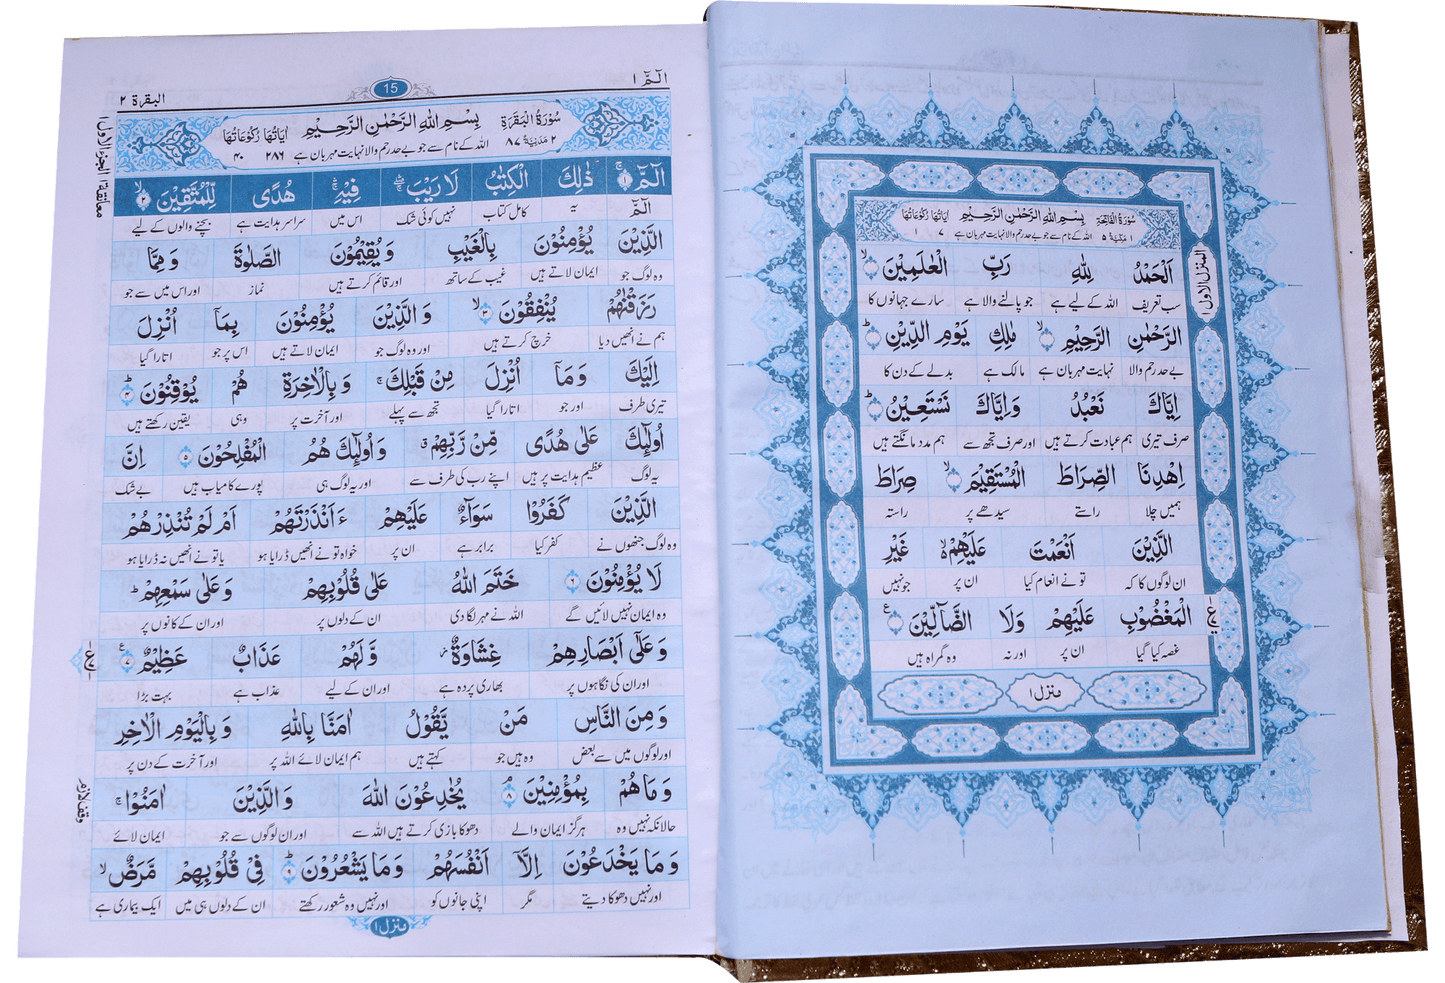 سُوْرَةُ الْفَاتِحَةِ بِسْمِ اللهِ الرَّحْمٰنِ الرَّحِيْمِ اٰيَاتُهَا رُكُوْعَاتُهَا
١ مَكِّيَّةٌ ٥ اللہ کے نام سے جو بے حد رحم والا نہایت مہربان ہے ٧ ١
المنزل الاول ١
اَلْحَمْدُ لِلّٰهِ رَبِّ الْعٰلَمِيْنَ ۙ
سب تعریف اللہ کے لیے ہے جو پالنے والا ہے سارے جہانوں کا
الرَّحْمٰنِ الرَّحِيْمِ ۙ مٰلِكِ يَوْمِ الدِّيْنِ ؕ
بے حد رحم والا نہایت مہربان ہے مالک ہے بدلے کے دن کا
اِيَّاكَ نَعْبُدُ وَاِيَّاكَ نَسْتَعِيْنُ ؕ
صرف تیری ہم عبادت کرتے ہیں اور صرف تجھ سے ہم مدد مانگتے ہیں
اِهْدِنَا الصِّرَاطَ الْمُسْتَقِيْمَ ۙ صِرَاطَ
ہمیں چلا راستے سیدھے پر راستہ
الَّذِيْنَ اَنْعَمْتَ عَلَيْهِمْ ۙ غَيْرِ
ان لوگوں کا کہ تو نے انعام کیا ان پر جو نہیں
الْمَغْضُوْبِ عَلَيْهِمْ وَلَا الضَّآلِّيْنَ
غصہ کیا گیا ان پر اور نہ وہ گمراہ ہیں
منزل ١
الٓمّٓ ١ 15 البقرة ٢
سُوْرَةُ الْبَقَرَةِ بِسْمِ اللهِ الرَّحْمٰنِ الرَّحِيْمِ اٰيَاتُهَا رُكُوْعَاتُهَا
٢ مَدَنِيَّةٌ ٨٧ اللہ کے نام سے جو بے حد رحم والا نہایت مہربان ہے ٢٨٦ ٤٠
الٓمّٓ ١ ذٰلِكَ الْكِتٰبُ لَا رَيْبَ فِيْهِ هُدًى لِّلْمُتَّقِيْنَ ۙ ٢
الٓمّٓ یہ کامل کتاب نہیں کوئی شک اس میں سراسر ہدایت ہے بچنے والوں کے لیے
الَّذِيْنَ يُؤْمِنُوْنَ بِالْغَيْبِ وَ يُقِيْمُوْنَ الصَّلٰوةَ وَ مِمَّا
وہ لوگ جو ایمان لاتے ہیں غیب کے ساتھ اور قائم کرتے ہیں نماز اور اس میں سے جو
رَزَقْنٰهُمْ يُنْفِقُوْنَ ۙ ٣ وَ الَّذِيْنَ يُؤْمِنُوْنَ بِمَآ اُنْزِلَ
ہم نے انھیں دیا خرچ کرتے ہیں اور وہ لوگ جو ایمان لاتے ہیں اس پر جو اتارا گیا
اِلَيْكَ وَ مَآ اُنْزِلَ مِنْ قَبْلِكَ ۚ وَ بِالْاٰخِرَةِ هُمْ يُوْقِنُوْنَ ؕ ٤
تیری طرف اور جو اتارا گیا تجھ سے پہلے اور آخرت پر وہی یقین رکھتے ہیں
اُولٰٓئِكَ عَلٰى هُدًى مِّنْ رَّبِّهِمْ ۗ وَ اُولٰٓئِكَ هُمُ الْمُفْلِحُوْنَ ٥ اِنَّ
یہ لوگ عظیم ہدایت پر ہیں اپنے رب کی طرف سے اور یہ لوگ ہی پورے کامیاب ہیں بے شک
الَّذِيْنَ كَفَرُوْا سَوَآءٌ عَلَيْهِمْ ءَاَنْذَرْتَهُمْ اَمْ لَمْ تُنْذِرْهُمْ
وہ لوگ جنھوں نے کفر کیا برابر ہے ان پر خواہ تو نے انھیں ڈرایا ہو یا تو نے انھیں نہ ڈرایا ہو
لَا يُؤْمِنُوْنَ ٦ خَتَمَ اللهُ عَلٰى قُلُوْبِهِمْ وَ عَلٰى سَمْعِهِمْ ؕ
وہ ایمان نہیں لائیں گے اللہ نے مہر لگا دی ان کے دلوں پر اور ان کے کانوں پر
وَ عَلٰٓى اَبْصَارِهِمْ غِشَاوَةٌ وَّ لَهُمْ عَذَابٌ عَظِيْمٌ ٧
اور ان کی نگاہوں پر بھاری پردہ ہے اور ان کے لیے عذاب ہے بہت بڑا
وَ مِنَ النَّاسِ مَنْ يَّقُوْلُ اٰمَنَّا بِاللّٰهِ وَ بِالْيَوْمِ الْاٰخِرِ
اور لوگوں میں سے بعض وہ ہیں جو کہتے ہیں ہم ایمان لائے اللہ پر اور آخرت کے دن پر
وَ مَا هُمْ بِمُؤْمِنِيْنَ ٨ يُخٰدِعُوْنَ اللهَ وَ الَّذِيْنَ اٰمَنُوْا ۚ
حالانکہ نہیں وہ ہرگز ایمان والے دھوکا بازی کرتے ہیں اللہ سے اور ان لوگوں سے جو ایمان لائے
وَ مَا يَخْدَعُوْنَ اِلَّآ اَنْفُسَهُمْ وَ مَا يَشْعُرُوْنَ ؕ ٩ فِيْ قُلُوْبِهِمْ مَّرَضٌ ۙ
اور نہیں دھوکا دیتے مگر اپنی جانوں کو اور نہیں وہ شعور رکھتے ان کے دلوں ہی میں ایک بیماری ہے
منزل ١
معانقة ١ الجزء الاول ١
وقف لازم